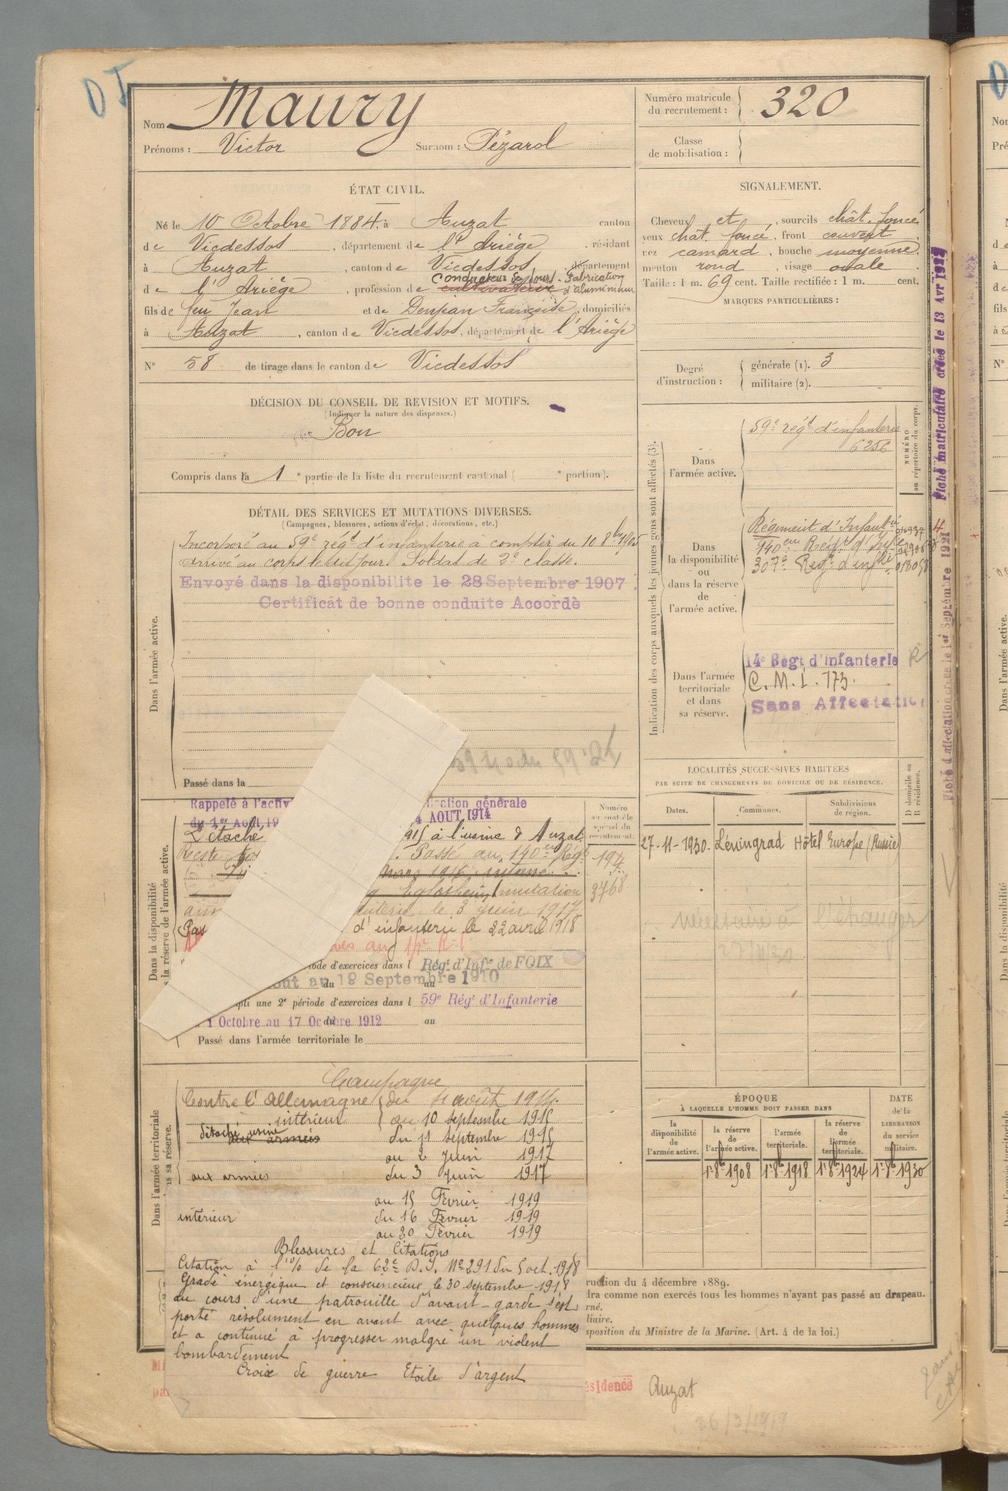 Nom Maury
Prénoms : Victor Surnom : Pézarol
Numéro matricule du recrutement : 320
Classe de mobilisation :
ÉTAT CIVIL.
Né le 10 Octobre 1884 à Auzat canton
de Vicdessos, département de l'Ariège, résidant
à Auzat, canton de Vicdessos, département
de l'Ariège, profession de cultivateur Conducteur de fours. Fabrication d'aluminium
fils de feu Jean et de Denjean Françoise, domiciliés
à Auzat, canton de Vicdessos, département de l'Ariège
N° 58 de tirage dans le canton de Vicdessos
SIGNALEMENT.
Cheveux et, sourcils chât. foncé
yeux chât. foncé, front couvert
nez camard, bouche moyenne
menton rond, visage ovale
Taille : 1 m. 69 cent. Taille rectifiée : 1 m. cent.
MARQUES PARTICULIÈRES :
Degré d'instruction :
générale (1). 3
militaire (2).
DÉCISION DU CONSEIL DE REVISION ET MOTIFS.
(Indiquer la nature des dispenses.)
Bon
Compris dans la 1e partie de la liste du recrutement cantonal ( e portion).
DÉTAIL DES SERVICES ET MUTATIONS DIVERSES.
(Campagnes, blessures, actions d'éclat, décorations, etc.)
Dans l'armée active.
Incorporé au 59e rég' d'infanterie à compter du 10 8bre 1905
arrivé au corps le dit jour. Soldat de 2e classe.
Envoyé dans la disponibilité le 28 Septembre 1907
Certificat de bonne conduite Accordé
Passé dans la
Indication des corps auxquels les jeunes gens sont affectés (3).
NUMÉRO au répertoire du corps.
Dans l'armée active.
59e rég' d'infanterie
6256
Dans la disponibilité ou dans la réserve de l'armée active.
Régiment d'Infant
140eme Rég' d'Inf
307e Reg' d'inf
Dans l'armée territoriale et dans sa réserve.
14e Regt d'Infanterie
C.M.I. 173.
Sans Affectation
Fiche matriculaire créée le 13 Avr 1924
Fiche d'affectation créée le 1er Septembre 192
LOCALITÉS SUCCESSIVES HABITÉES
PAR SUITE DE CHANGEMENTS DE DOMICILE OU DE RÉSIDENCE.
Dates. Communes. Subdivisions de région. D domicile ou R résidence.
27-11-1930. Léningrad Hôtel Europe (Russie)
à l'étranger
Dans la disponibilité
la réserve de l'armée active.
Rappelé à l'activ
ation générale
du 1er Août 19
4 AOUT 1914
Détaché
915 à l'usine d'Auzat
Passé au 140e Rég'
mutation
le 3 juin 1917
Pas
d'infanterie le 22 avril 1918
194
3768
iode d'exercices dans l Rég' d'Infie de FOIX
out au du 18 Septembre 1910 au
pli une 2e période d'exercices dans l 59e Rég' d'Infanterie
1 Octobre au 17 Octobre 1912 au
Passé dans l'armée territoriale le
Dans l'armée territoriale
sa réserve.
Campagne
Contre l'Allemagne du 4 août 1914
intérieur au 10 septembre 1915
détaché usine aux armées du 11 septembre 1915
au 2 juin 1917
aux armées du 3 juin 1917
au 15 Février 1919
intérieur du 16 Fevrier 1919
au 20 Février 1919
Blessures et Citations
Citation à l'O/ de la 62e D.I. N° 291 du 5 oct. 1918
Gradé énergique et consciencieux le 30 septembre 1918
au cours d'une patrouille d'avant-garde s'est
porté résolument en avant avec quelques hommes
et a continué à progresser malgré un violent
bombardement
Croix de guerre Etoile d'argent
ÉPOQUE
À LAQUELLE L'HOMME DOIT PASSER DANS
la disponibilité de l'armée active. la réserve de l'armée active. l'armée territoriale. la réserve de l'armée territoriale.
DATE de la LIBÉRATION du service militaire.
1er 8bre 1908 1er 8bre 1918 1er 8bre 1924 1er 8bre 1930
ruction du 4 décembre 1889.
dra comme non exercés tous les hommes n'ayant pas passé au drapeau.
rné.
liaire.
sposition du Ministre de la Marine. (Art. 4 de la loi.)
ésidence Auzat
26/3/1919